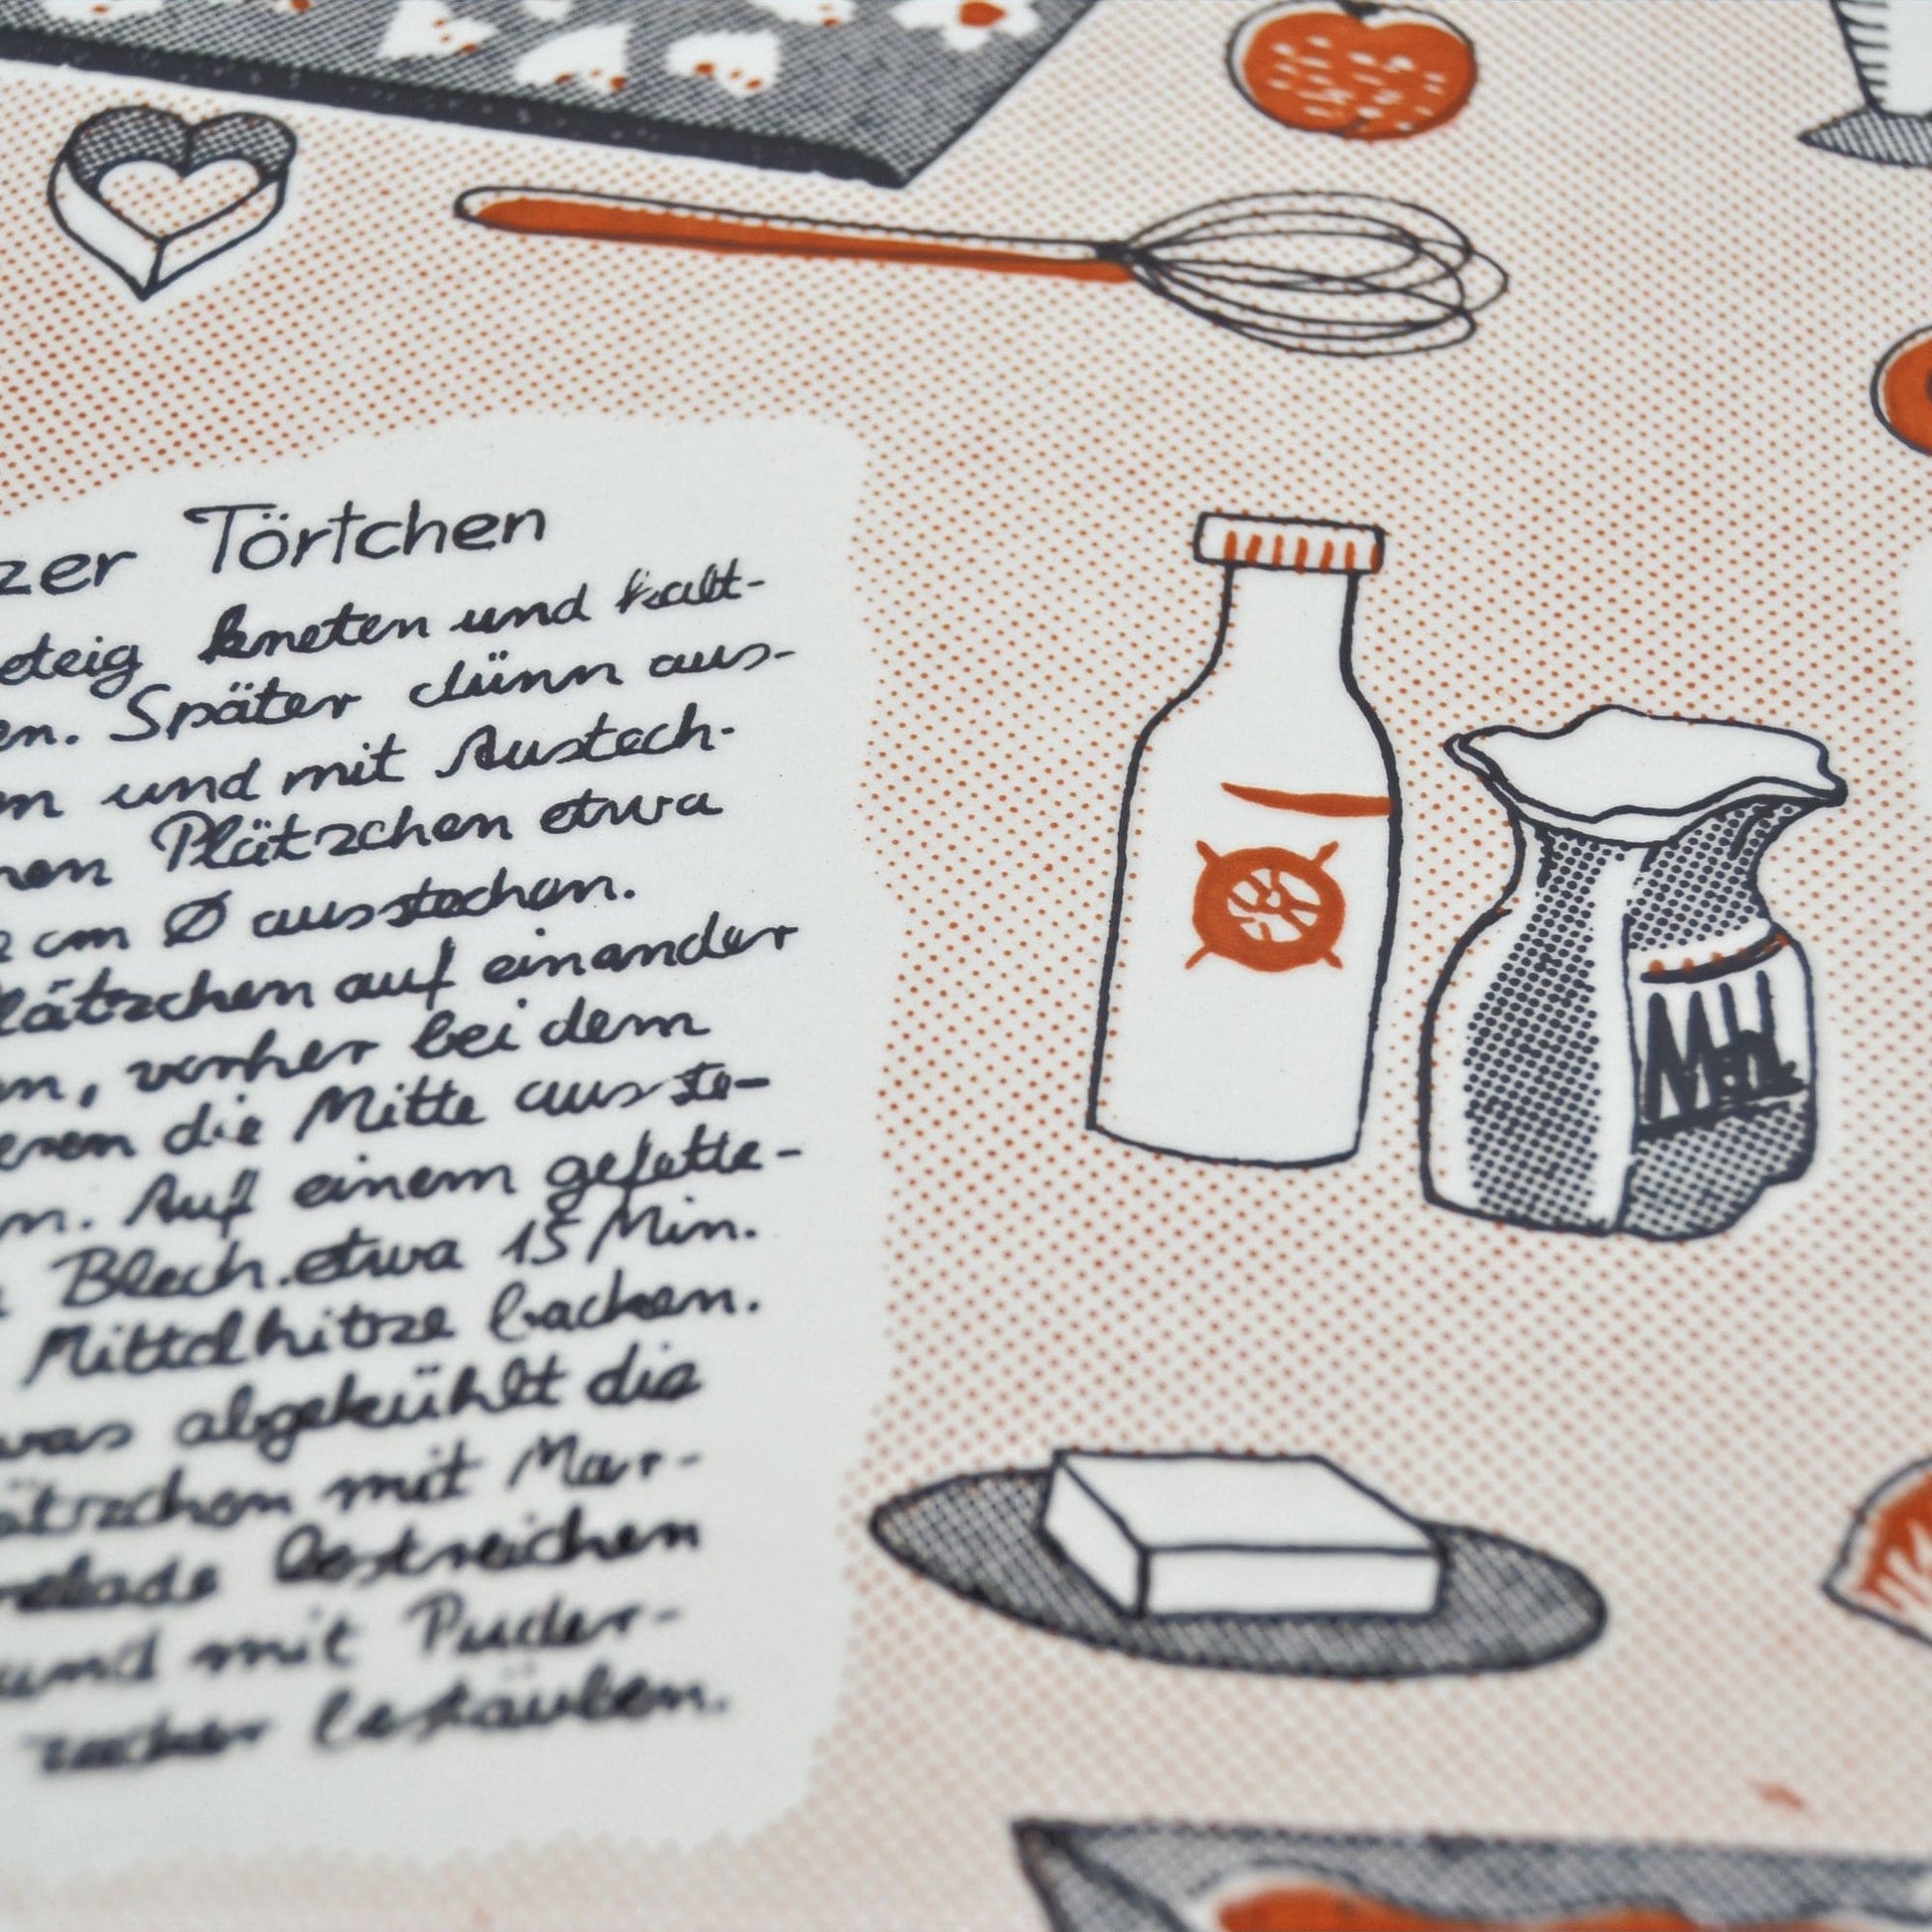 zer Törtchen
eteig kneten und kalt-
en. Später dünn aus-
en und mit Austech-
hen Plätzchen etwa
2 cm Ø ausstechen.
lätzchen auf einander
en, vorher bei dem
eren die Mitte ausste-
en. Auf einem gefette-
Blech etwa 15 Min.
Mittelhitze backen.
was abgekühlt die
ätzchen mit Mar-
melade bestreichen
und mit Puder-
zucker bestäuben.
Mehl